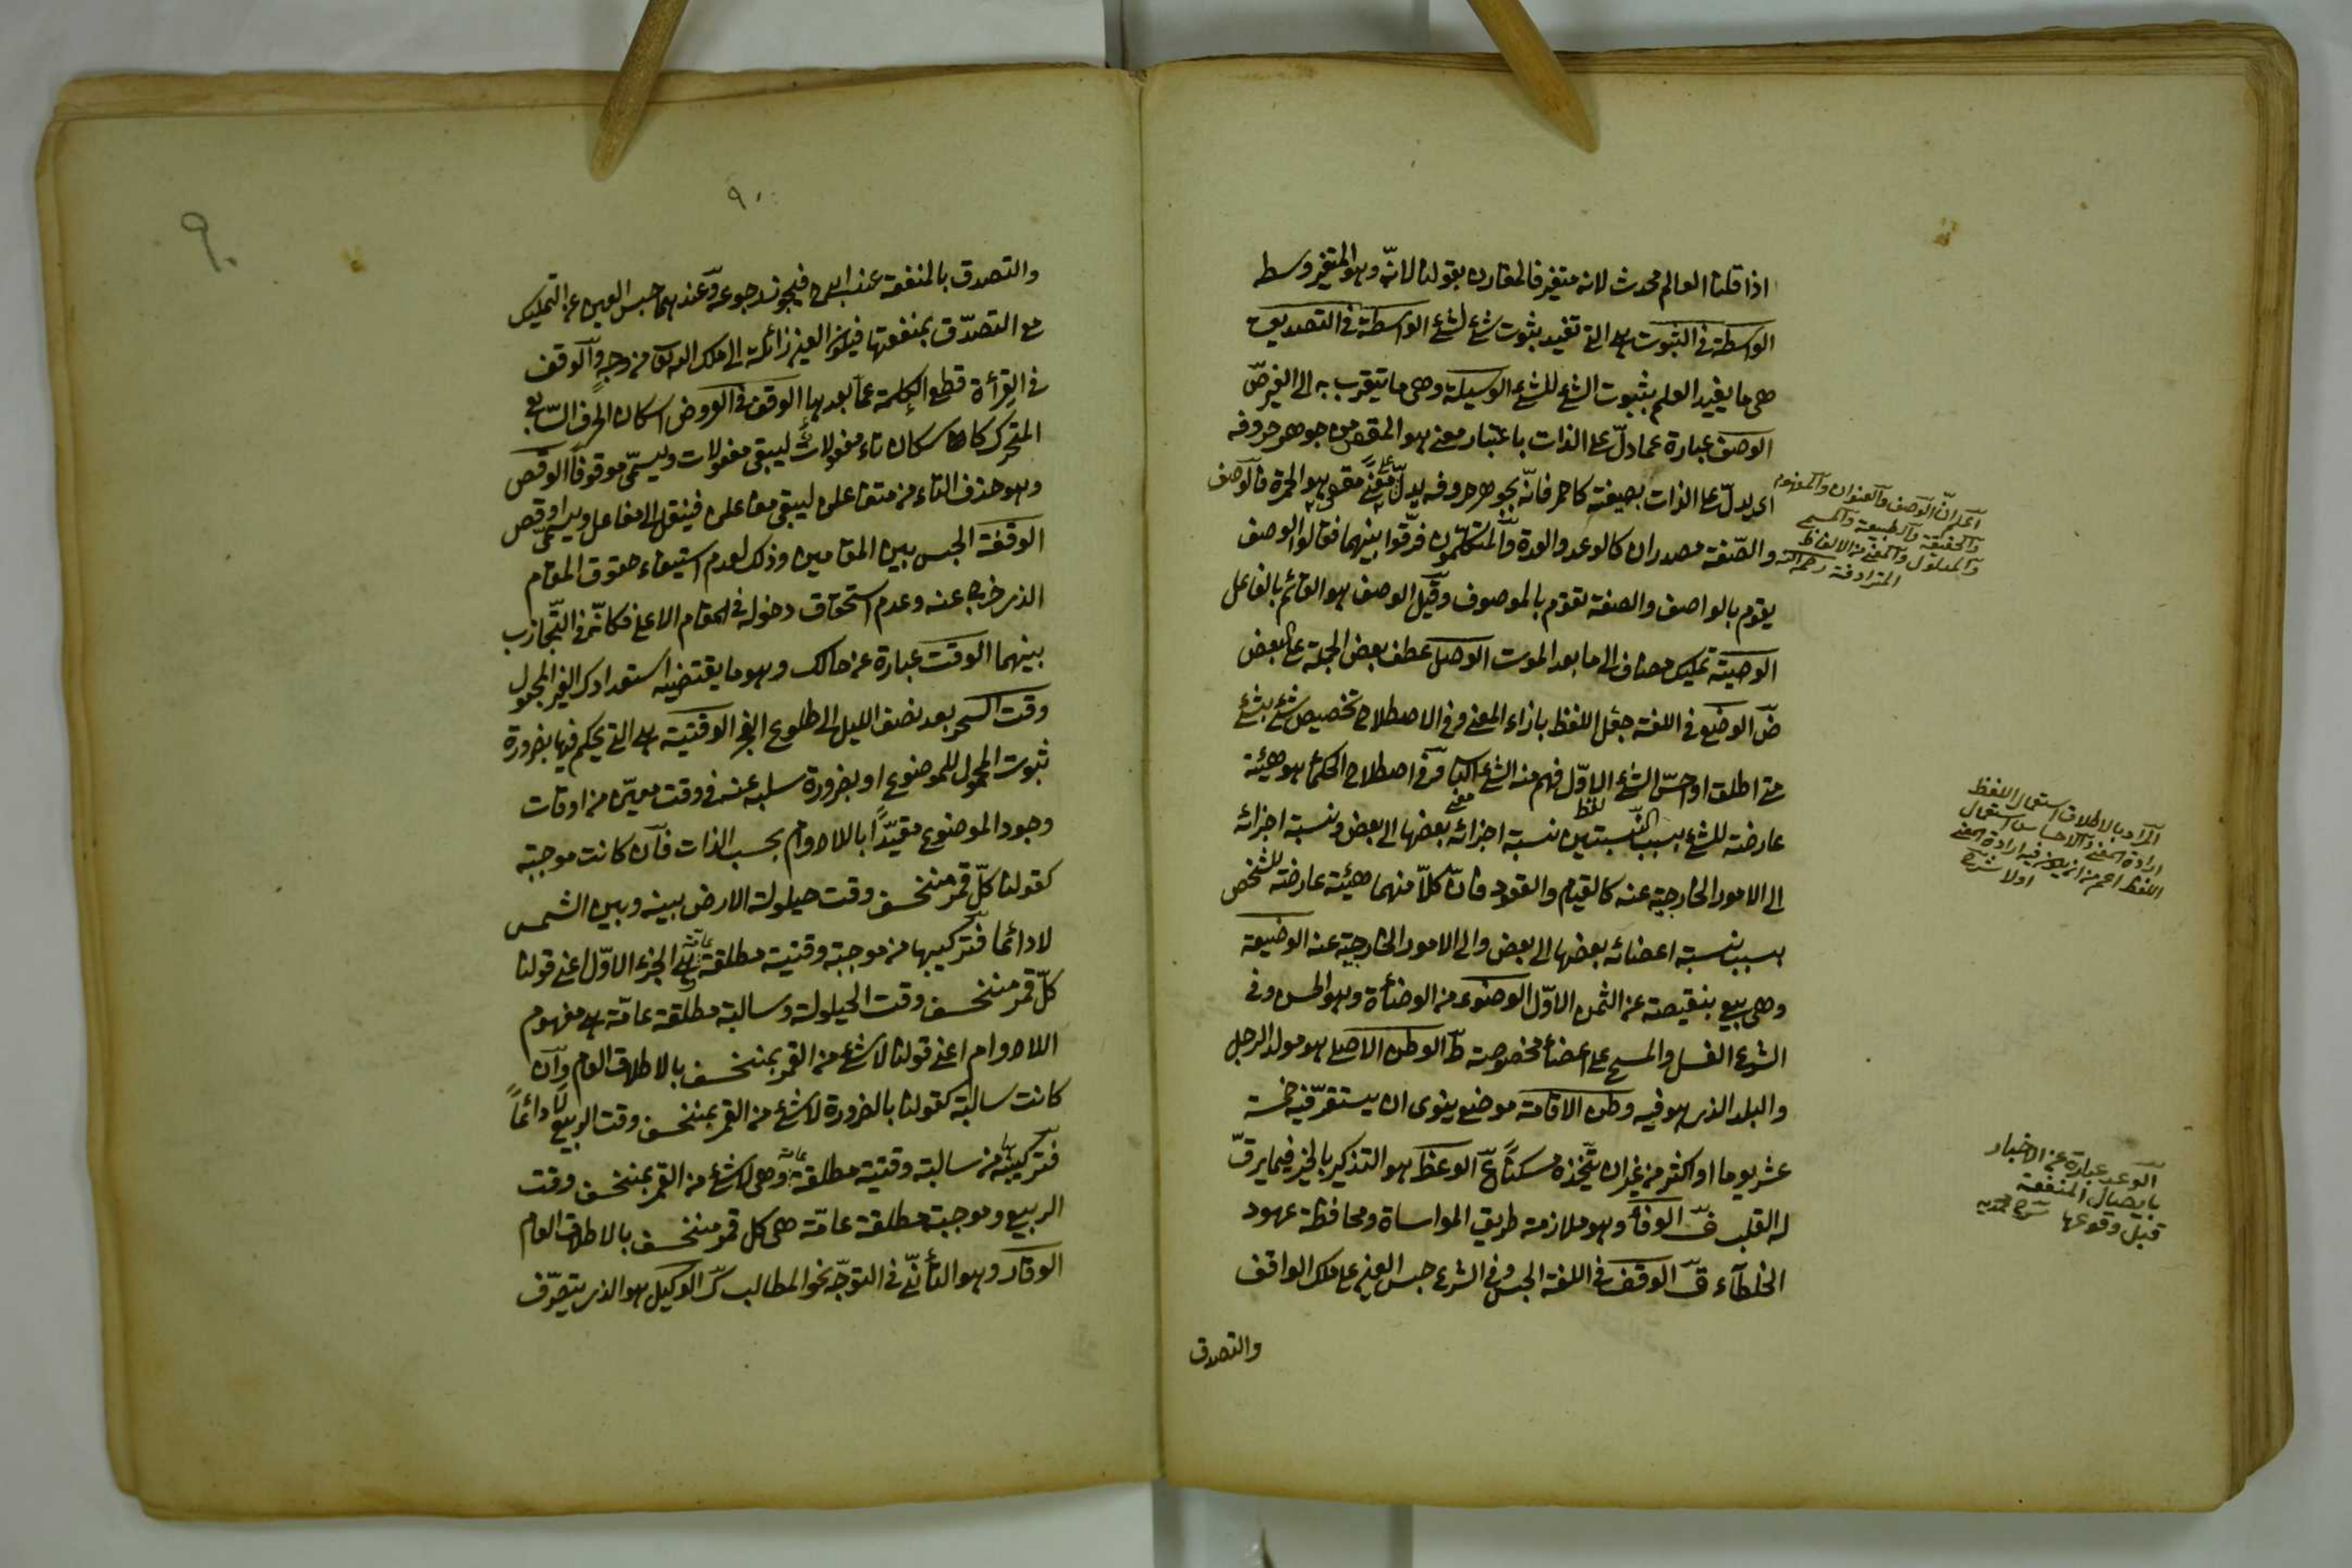 اذا قلنا العالم محدث لانه متغير فالمقارن بقولنا لانّه وهو المتغير وسط
الواسطة فى الثبوت هى التى تفيد بثبوت شئ لشئ الواسطة فى التصديق
هى ما يفيد العلم بثبوت الشئ للشئ الوسيلة وهى ما يتقرب به الى الغير صّ
الوصف عبارة عما دلّ على الذات باعتبار معنى هو المقصود من جوهر حروفه
اى يدلّ على الذات بصيغته كاحمر فانّه بجوهر حروفه يدلّ على معنى مقصود هو الحمرة فالوصف
والصّفة مصدران كالوعد والعدة والمتكلّمون فرّقوا بينهما فقالوا الوصف
يقوم بالواصف والصفة تقوم بالموصوف وقيل الوصف هو القائم بالفاعل
الوصية تمليك مضاف الى ما بعد الموت الوصل عطف بعض الجملة على البعض
ضّ الوضع فى اللغة جعل اللفظ بازاء المعنى وفى الاصطلاح تخصيص شئ بشئ
متى اطلق او احسّ الشئ الاوّل فهم منه الشئ الثانى وفى اصطلاح الحكماء هو هيئة
عارضة للشئ بسبب النّسبتين نسبة اجزائه بعضها الى بعض ونسبة اجزائه
الى الامور الخارجية عنه كالقيام والقعود فانّ كلّا منهما هيئة عارضة للشخص
بسبب نسبة اعضائه بعضها الى بعض والى الامور الخارجية عنه الوضيعة
وهى بيع بنقيصة عن الثمن الاوّل الوضوء من الوضأة وهو الحسن وفى
الشرع الغسل والمسح على اعضأ مخصوصة طّ الوطن الاصلى هو مولد الرجل
والبلد الذى هو فيه وطن الاقامة موضع ينوى ان يستقرّ فيه خمسة
عشر يوما او اكثر من غير ان يتّخذه مسكنًا عّ الوعظ هو التذكير بالخير فيما يرقّ
له القلب فّ الوفأ وهو ملازمة طريق المواساة ومحافظة عهود
الخلطآء قّ الوقف فى اللغة الحبس وفى الشرع حبس العين على ملك الواقف
والتصدق
اعلم انّ الوصف والعنوان والمفهوم
والحقيقة والطبيعة والمسمى
والمدلول والمعنى من الالفاظ
المترادفة
المراد بالاطلاق استعمال اللفظ
ارادة المعنى والاحساس استعمال
اللفظ اعم من ان يكون فيه ارادة المعنى
اولا شرح
الوعد عبارة عن الاخبار
بايصال المنفعة
قبل وقوعها
٩٠
٩٠
والتصدق بالمنفعة عند فيجوز رجوعه وعندهما حبس العين عن التمليك
مع التصدّق بمنفعتها فيكون العين زائلة الى ملك الله تعالى من وجه والوقف
فى القرأة قطع الكلمة عما بعدها الوقف فى العروض اسكان الحرف السّابع
المتحرك كاسكان تاء مفعولات ليبقى مفعولات ويسمّى موقوفا الوقص
وهو حذف التاء من متفاعلن ليبقى مفاعلن فينقل الى مفاعلن ويسمّى اوقص
الوقفة الحبس بين المقامين وذلك لعدم استيفاء حقوق المقام
الذى خرج عنه وعدم استحقاق دخوله فى المقام الاعلى فكانّه فى التّجاذب
بينهما الوقت عبارة عن حالك وهو ما يقتضيه استعدادك الغير المجعول
وقت السحر بعد نصف الليل الى طلوع الفجر الوقتية هى التى يحكم فيها بضرورة
ثبوت المحمول للموضوع او بضرورة سلبه عنه فى وقت معيّن من اوقات
وجود الموضوع مقيّدًا باللادوام بحسب الذات فان كانت موجبة
كقولنا كلّ قمر منخسف وقت حيلولة الارض بينه وبين الشمس
لا دائما فتركيبها من موجبة وقتية مطلقة هى الجزء الاوّل اعنى قولنا
كلّ قمر منخسف وقت الحيلولة وسالبة مطلقة عامّة هى مفهوم
اللادوام اعنى قولنا لا شئ من القمر بمنخسف بالاطلاق العام وان
كانت سالبة كقولنا بالضرورة لا شئ من القمر بمنخسف وقت الربيع لا دائمًا
فتركيبها من سالبة وقتية مطلقة وهى لا شئ من القمر بمنخسف وقت
الربيع وموجبة مطلقة عامّة هى كل قمر منخسف بالاطلاق العام
الوقار وهو التأنّى فى التوجّه نحو المطالب كّ الوكيل هو الذى يتصرّف